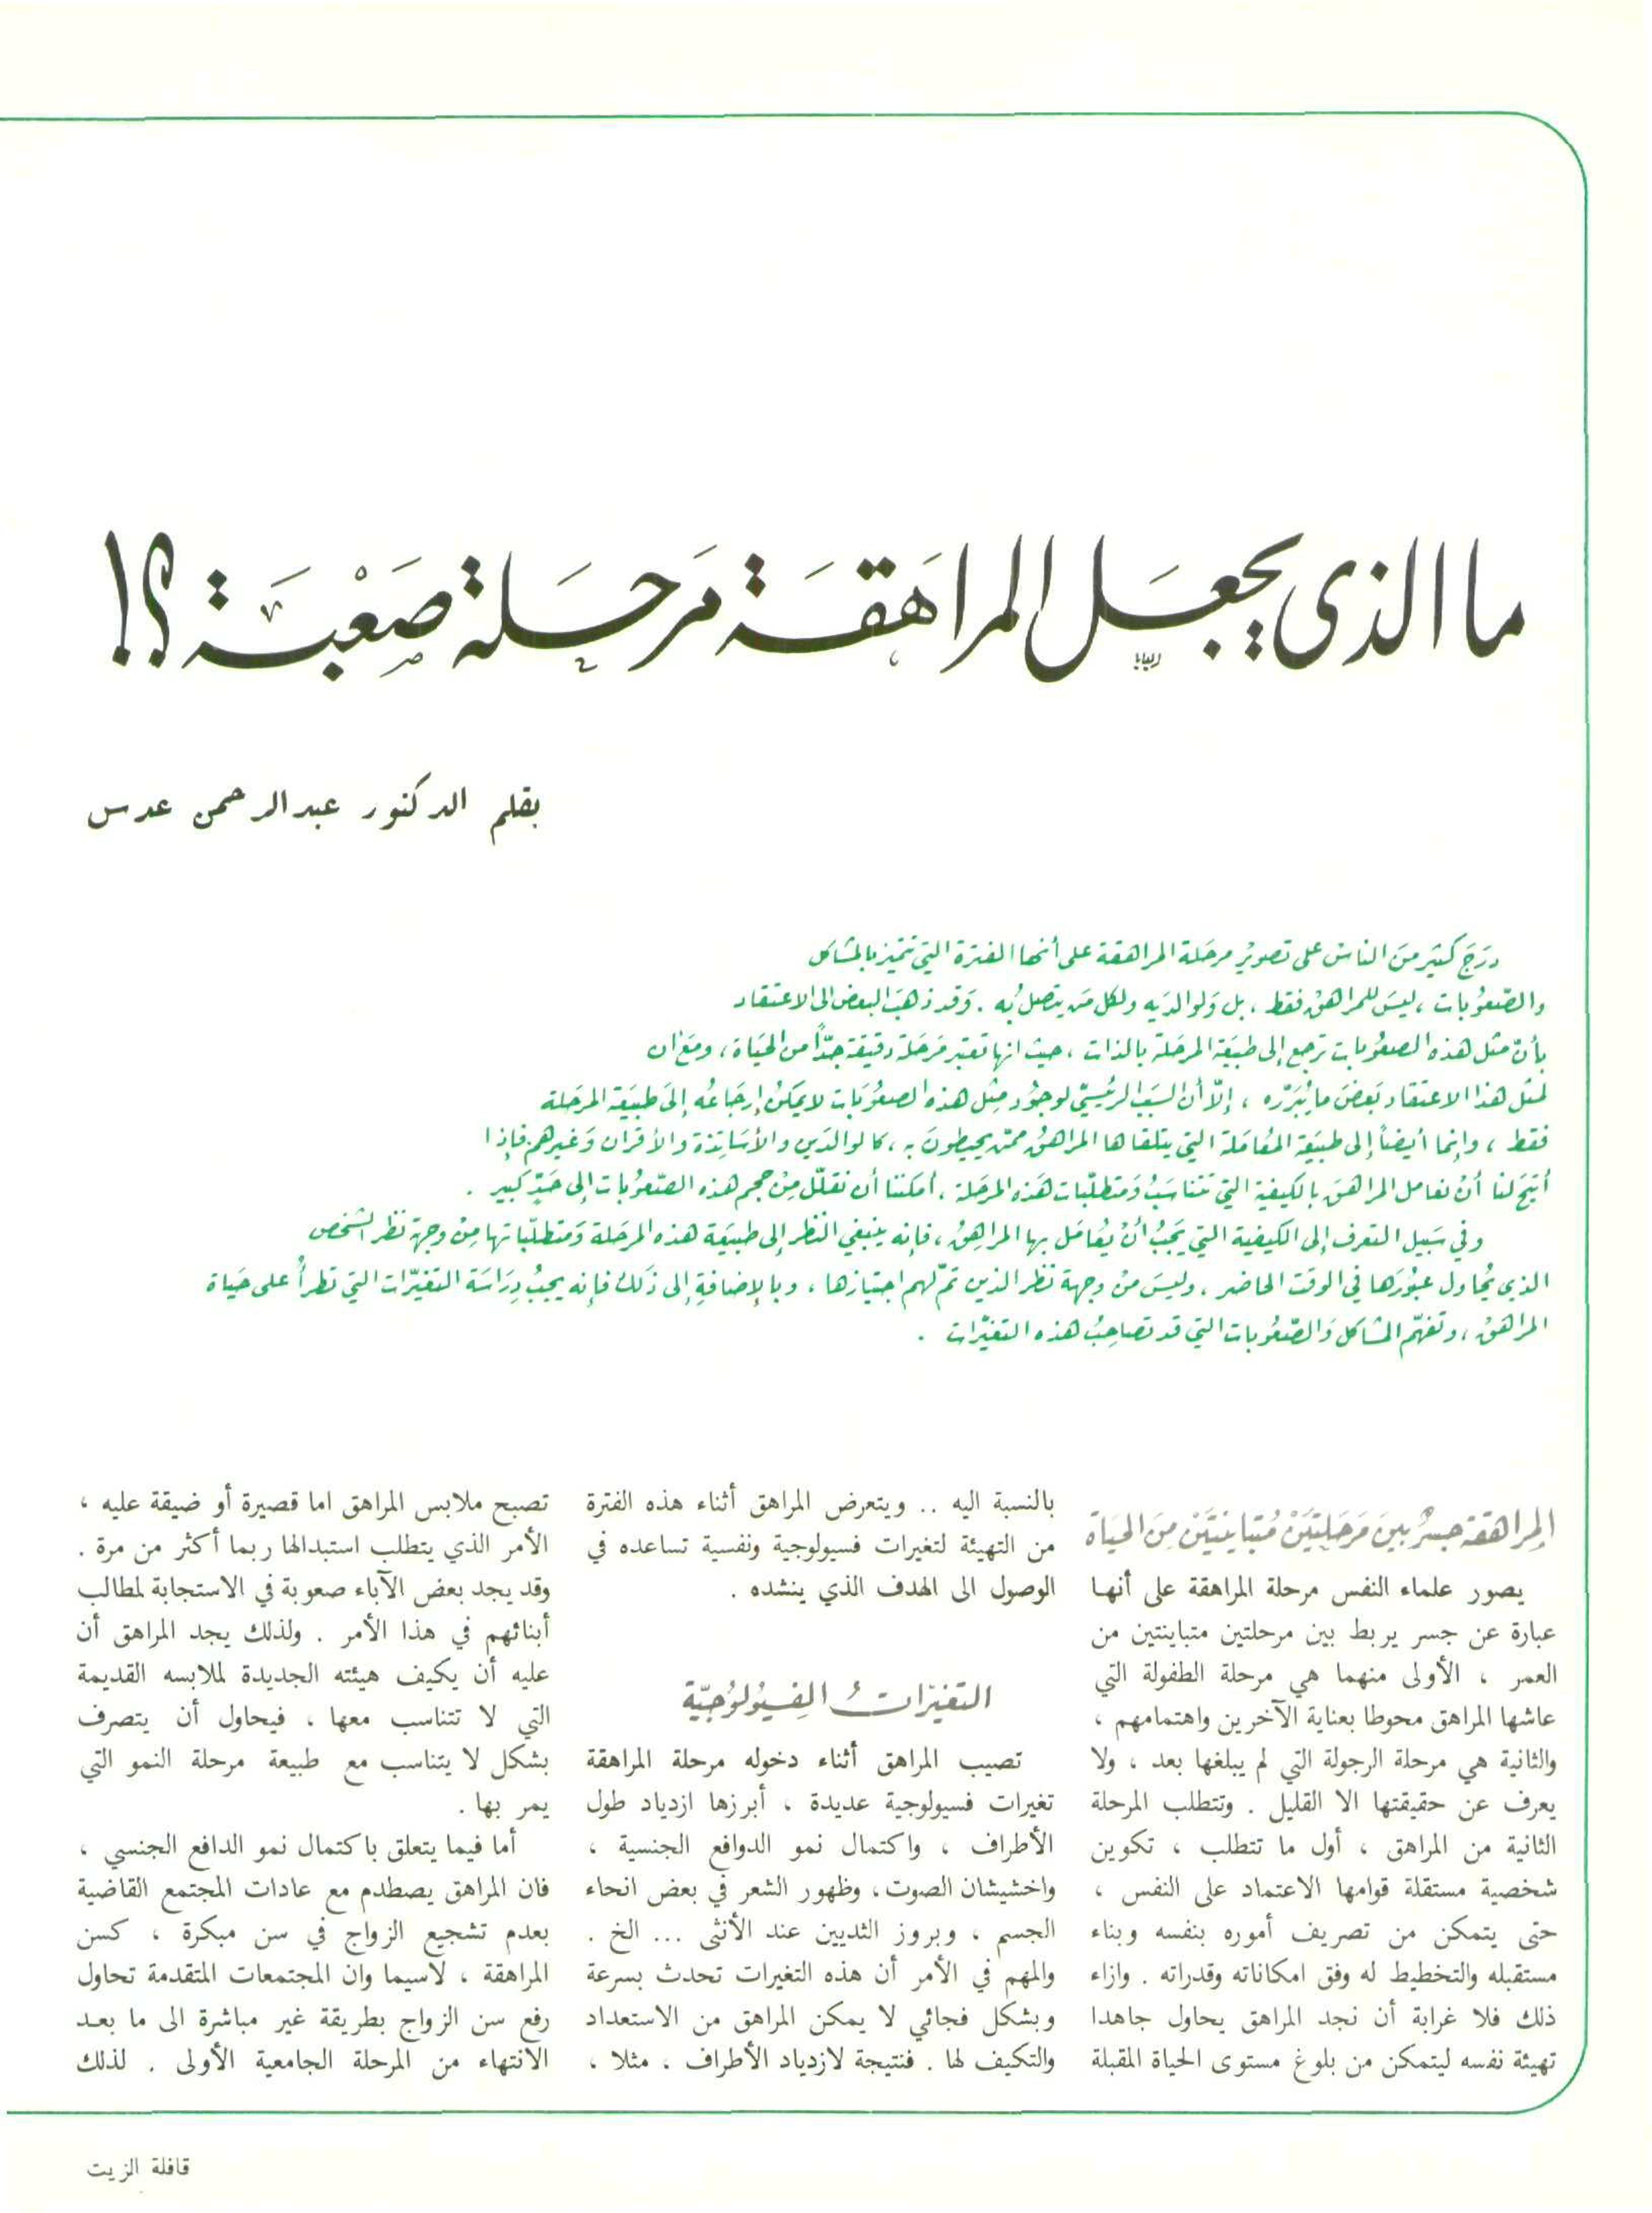 ما الذي يجعل المراهقة مرحلة صعبة ؟!
بقلم الدكتور عبدالرحمن عدس
درَجَ كثير منَ الناس على تصوير مرحَلة المراهقة على أنها الفترة التي تتميّز بالمشاكل
والصّعوُبات ، ليسَ للمراهق فقط ، بل وَلوالديَه ولكل مَن يتصل به . وَقد ذهبَ البعض الى الاعتقاد
بأنّ مثل هذه الصعوُبات ترجع إلى طبيَعة المرحَلة بالذات ، حيث انها تعتبر مَرحَلة دقيقة جدّاً من الحيَاة ، ومَع ان
لمثل هذا الاعتقاد بَعضَ ما يُبَرّره ، إلاّ أن السَبَب الرئيسيّ لوجوُد مِثل هذه الصعوُبَات لا يمكنُ إرجَاعُه إلىَ طبيَعة المرحَلة
فقط ، وإنما أيضاً إلى طبيَعة المُعَامَلة التي يتلقاها المراهقُ ممّن يحيطونَ به ، كالوالدَين والأسَاتِذة والأقران وَغيرهم. فإذا
أتيحَ لنا أنْ نعامل المراهقَ بالكيفية التي تتناسَبُ وَمتطلّبات هَذه المرحَلة ، أمكننا أن نقلّل مِنْ حجم هذه الصّعوُبات إلى حَدٍّ كبير .
وفي سَبيل التعرف إلى الكيفية التي يَجبُ أنْ يُعَامَل بها المراهِقُ ، فإنه ينبغي النظر إلى طبيَعة هذه المرحَلة وَمتطلّباتها مِنْ وجهة نظر الشخص
الذي يُحاول عبوُرَها في الوقت الحاضر ، وليسَ منْ وجهة نظر الذين تمّ لهم اجتيازها ، وبالإضافةِ إلى ذَلك فإنه يجبُ دِرَاسَة التغيّرات التي تطرأُ على حيَاة
المراهق ، وتفهّم المشاكل وَالصّعوُبات التي قد تصاحِبُ هذه التغيّرات .
المراهقة جسرٌ بينَ مَرحَلتيَنْ مُتباينتيَنْ مِنَ الحيَاة
يصور علماء النفس مرحلة المراهقة على أنها
عبارة عن جسر يربط بين مرحلتين متباينتين من
العمر ، الأولى منهما هي مرحلة الطفولة التي
عاشها المراهق محوطا بعناية الآخرين واهتمامهم ،
والثانية هي مرحلة الرجولة التي لم يبلغها بعد ، ولا
يعرف عن حقيقتها الا القليل . وتتطلب المرحلة
الثانية من المراهق ، أول ما تتطلب ، تكوين
شخصية مستقلة قوامها الاعتماد على النفس ،
حتى يتمكن من تصريف أموره بنفسه وبناء
مستقبله والتخطيط له وفق امكاناته وقدراته . وازاء
ذلك فلا غرابة أن نجد المراهق يحاول جاهدا
تهيئة نفسه ليتمكن من بلوغ مستوى الحياة المقبلة
بالنسبة اليه .. ويتعرض المراهق أثناء هذه الفترة
من التهيئة لتغيرات فسيولوجية ونفسية تساعده في
الوصول الى الهدف الذي ينشده .
التغيّراتُ الفِسيُولوُجيّة
تصيب المراهق أثناء دخوله مرحلة المراهقة
تغيرات فسيولوجية عديدة ، أبرزها ازدياد طول
الأطراف ، واكتمال نمو الدوافع الجنسية ،
واخشيشان الصوت ، وظهور الشعر في بعض انحاء
الجسم ، وبروز الثديين عند الأنثى ... الخ .
والمهم في الأمر أن هذه التغيرات تحدث بسرعة
وبشكل فجائي لا يمكن المراهق من الاستعداد
والتكيف لها . فنتيجة لازدياد الأطراف ، مثلا ،
تصبح ملابس المراهق اما قصيرة أو ضيقة عليه ،
الأمر الذي يتطلب استبدالها ربما أكثر من مرة .
وقد يجد بعض الآباء صعوبة في الاستجابة لمطالب
أبنائهم في هذا الأمر . ولذلك يجد المراهق أن
عليه أن يكيف هيئته الجديدة لملابسه القديمة
التي لا تتناسب معها ، فيحاول أن يتصرف
بشكل لا يتناسب مع طبيعة مرحلة النمو التي
يمر بها .
أما فيما يتعلق باكتمال نمو الدافع الجنسي ،
فان المراهق يصطدم مع عادات المجتمع القاضية
بعدم تشجيع الزواج في سن مبكرة ، كسن
المراهقة ، لاسيما وان المجتمعات المتقدمة تحاول
رفع سن الزواج بطريقة غير مباشرة الى ما بعد
الانتهاء من المرحلة الجامعية الأولى . لذلك
قافلة الزيت